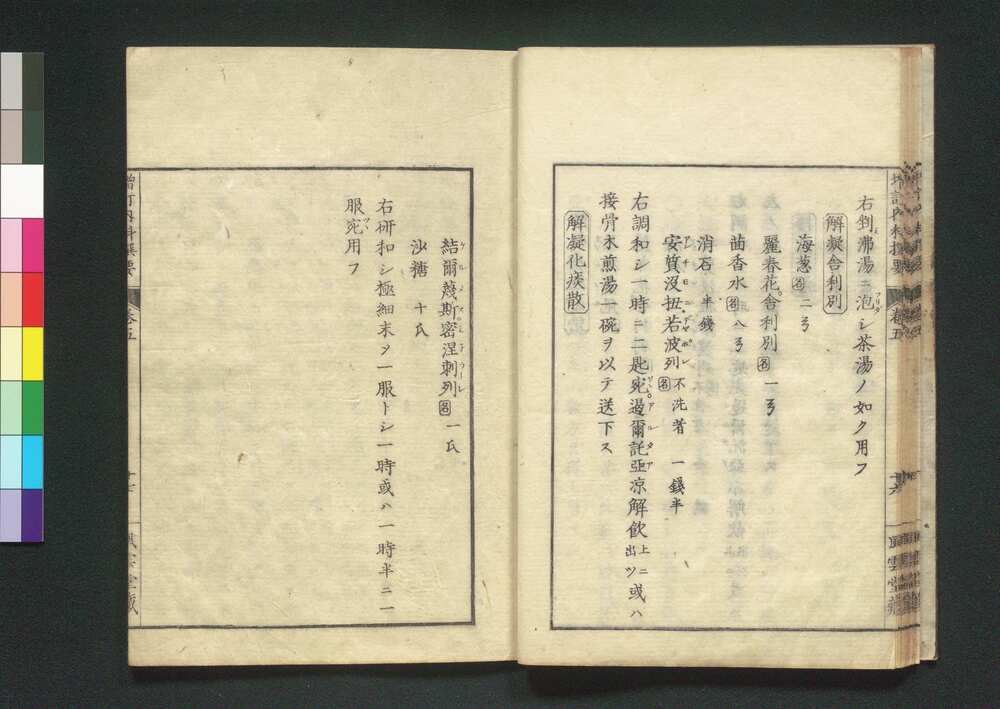 右剉沸湯ニ泡シ茶湯ノ如ク用フ
解凝舎利別
海葱 名 二ヲ
麗春花舎利別 名 一ヲ
茴香水 名 八ヲ
消石 半錢
安質没扭若波列 名 不洗者 一錢半
右調和シ一時ニ二匙宛過爾託亞凉解飲 上ニ出ツ 或ハ
接骨木煎湯一碗ヲ以テ送下ス
解凝化痰散
結爾蔑斯密涅刺列 名 一氏
沙糖 十氏
右研和シ極細末ヲ一服トシ一時或ハ一時半ニ一
服宛用フ
増訂内科撰要
卷五